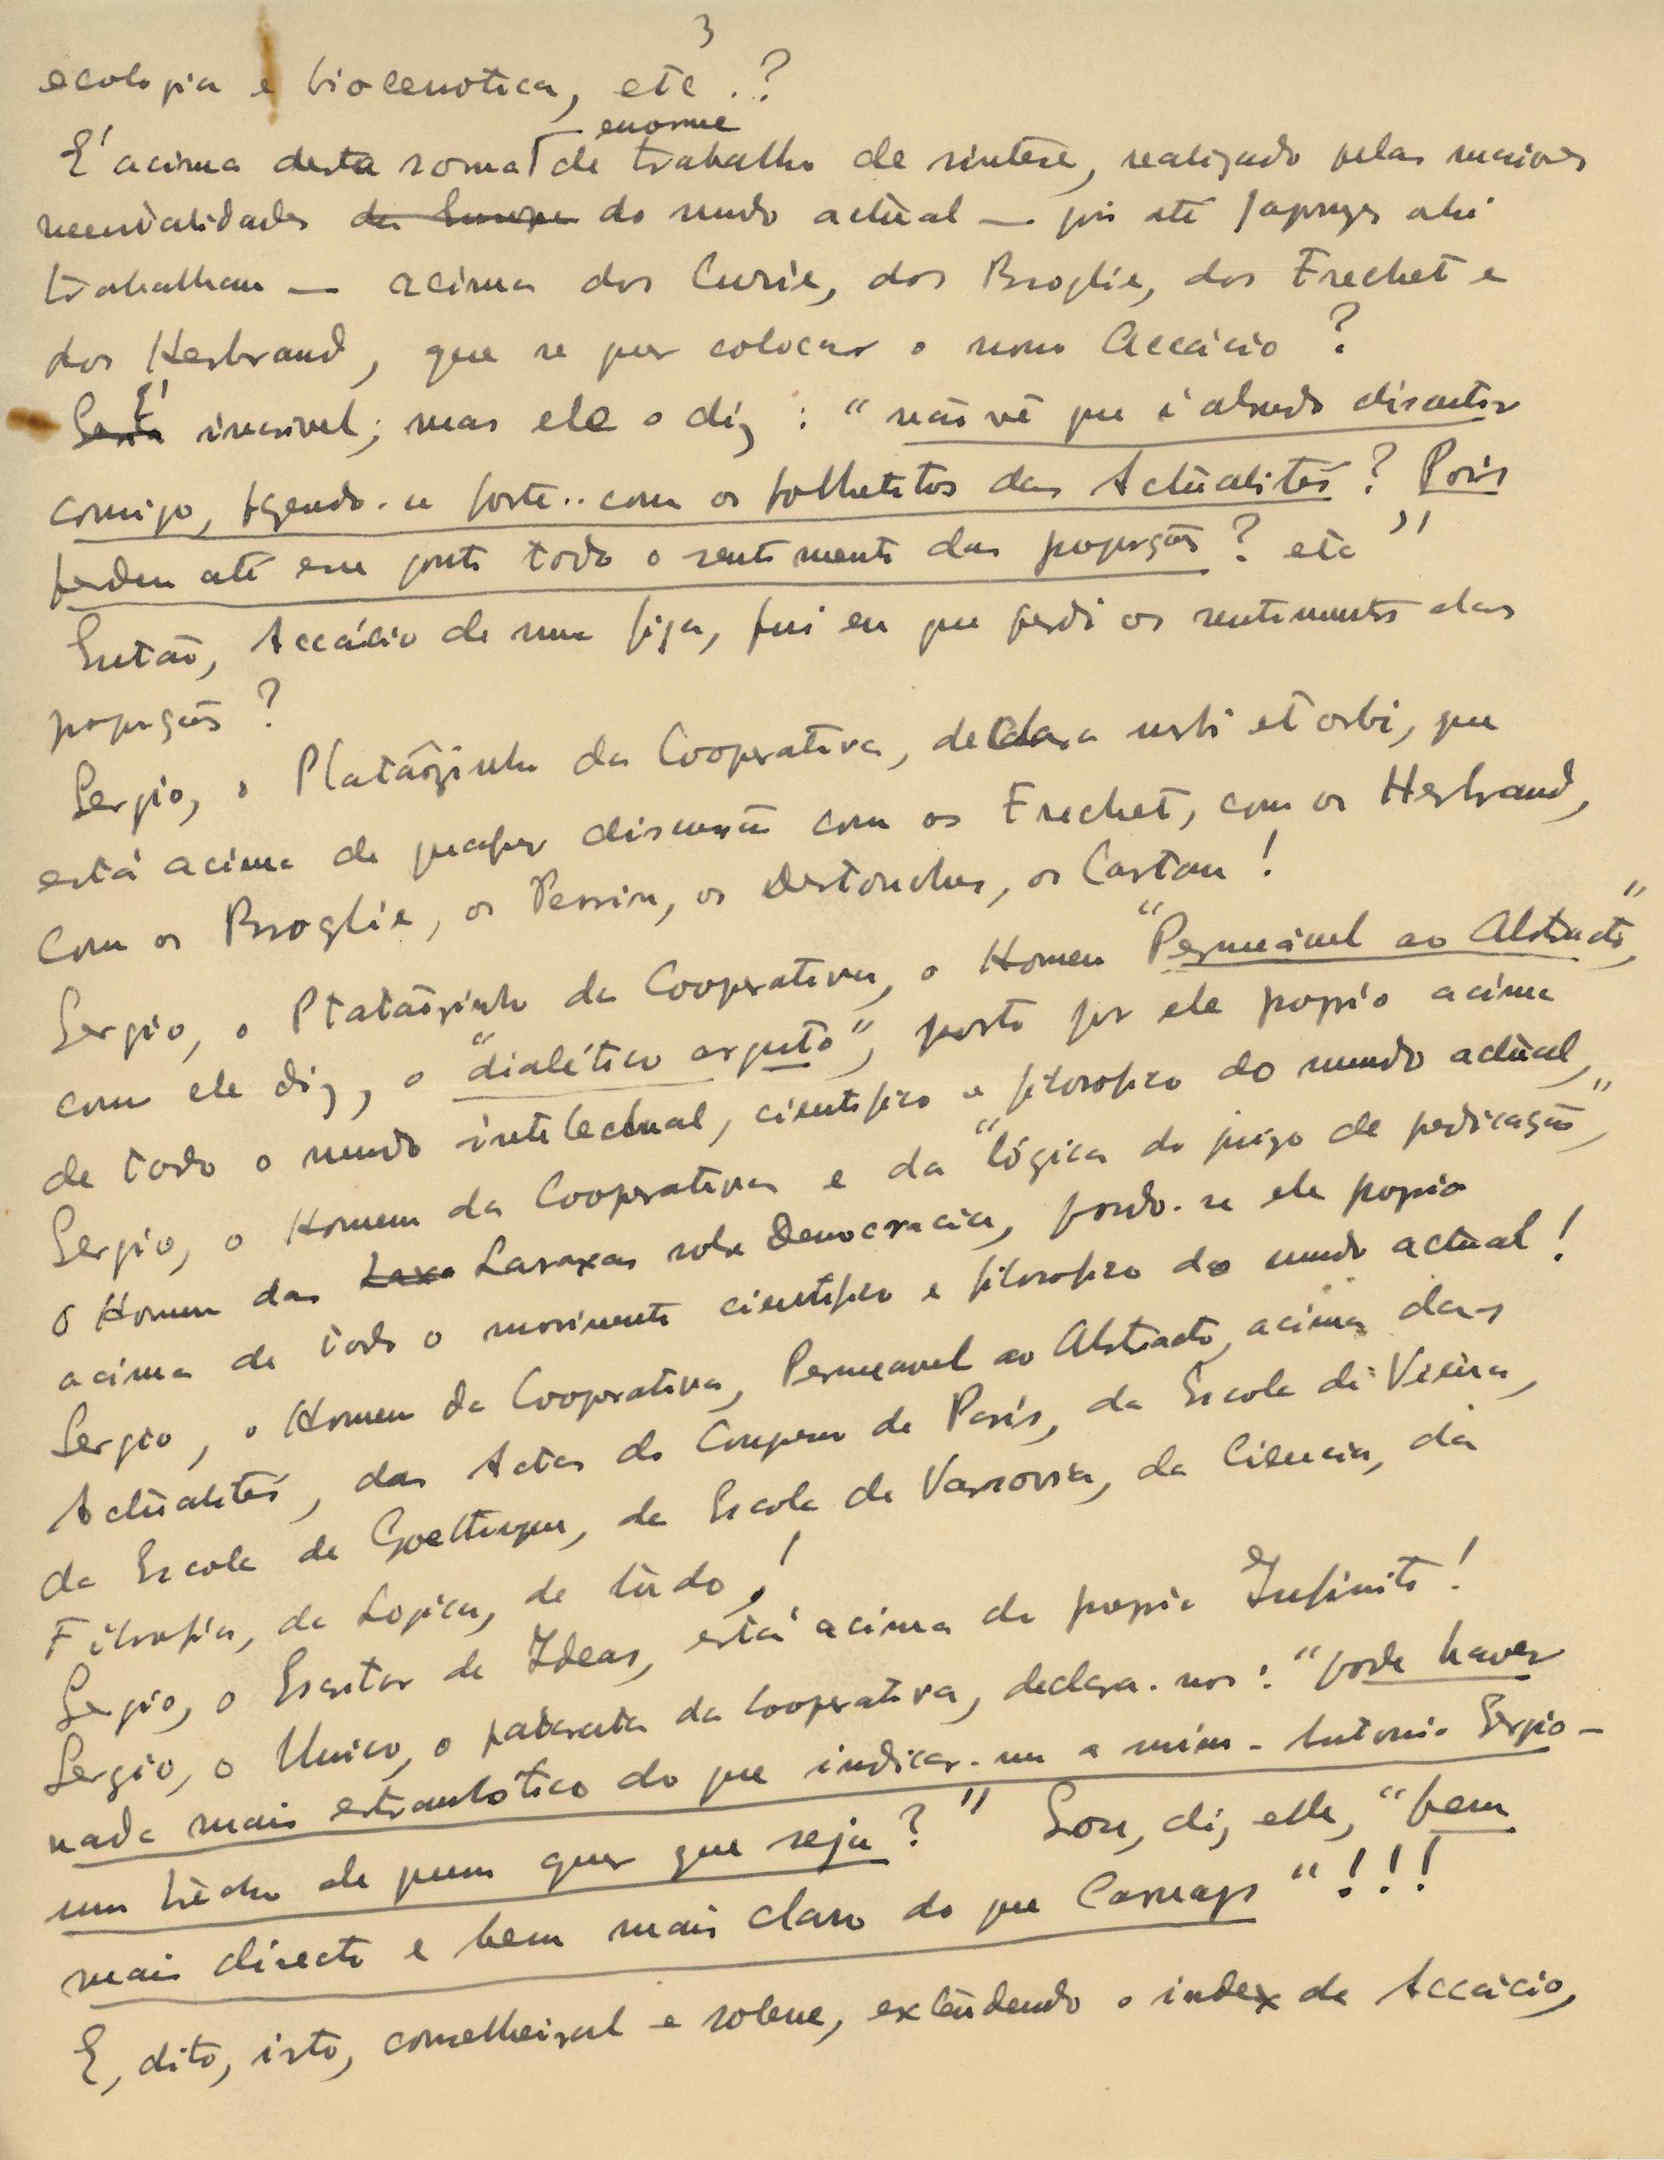 3
ecologia e biocenotica, etc.?
É acima desta soma de enorme trabalho de sintese, realizado pelas maiores
mentalidades da Europa do mundo actùal — pois até Japonezes ahi
trabalham — acima dos Curie, dos Broglie, dos Frechet e
dos Herbrand, que se quer colocar o novo Accácio?
Será É incrivel; mas ele o diz: "não vê que é absurdo discutir
comigo, fazendo-se forte.. com os folhetitos das Actùalités? Pois
perdeu até esse ponto todo o sentimento das proporções? etc"
Então, Accácio de uma figa, fui eu que perdi os sentimentos das
proporções?
Sergio, o Platãozinho da Cooperativa, declara urbi et orbi, que
está acima de qualquer discussão com os Frechet, com os Herbrand,
com os Broglie, os Perrin, os Destouches, os Cartan!
Sergio, o Platãozinho da Cooperativa, o Homem "Permeável ao Abstracto",
como ele diz, o "dialético arguto", posto por ele proprio acima
de todo o mundo intelectual, cientifico e filosofico do mundo actùal,
Sergio, o Homem da Cooperativa e da "lógica do juizo de predicação",
o Homem das Laxa Laraxas sobre Democracia, pondo-se ele proprio
acima de todo o movimento cientifico e filosofico do mundo actùal!
Sergio, o Homem da Cooperativa, Permeavel ao Abstracto, acima das
Actùalités, das Actas do Congresso de Paris, da Escola de Viena,
da Escola de Goettingen, da Escola de Varsovia, da Ciencia, da
Filosofia, da Logica, de tùdo!
Sergio, o Escritor de Ideas, está acima do proprio Infinito!
Sergio, o Unico, o patarata da Cooperativa, declara-nos: "pode haver
nada mais estrambótico do que indicar-me a mim - Antonio Sergio -
um trècho de quem quer que seja?" Sou, diz elle, "bem
mais directo e bem mais claro do que Carnap"!!!
E, dito, isto, conselheiral e solene, extèndendo o index de Accácio,